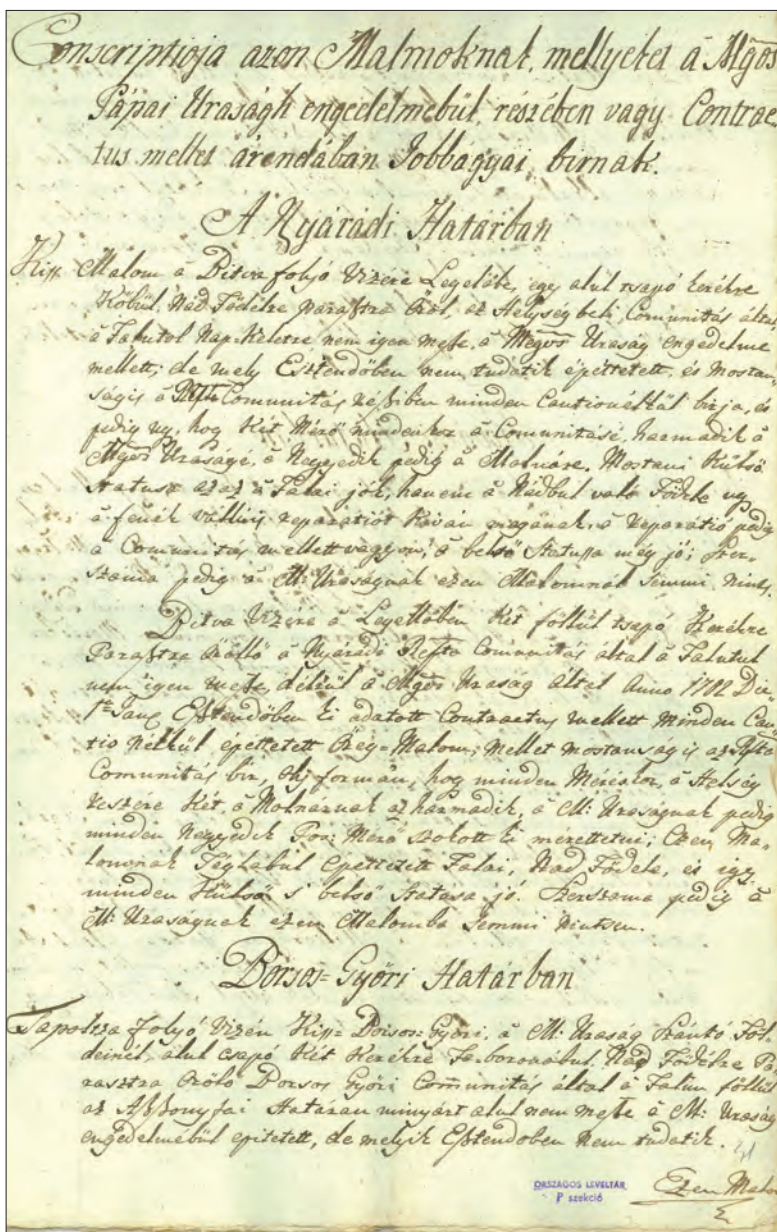 Conscriptioja azon Malmoknak, mellyeket á Mgos
Pápai Uraságh engedelmebül, részében vagy Contrac-
tus mellet árendában Jobbágyai birnak.
A Nyárádi Határban
Kiss Malom á Bitva folyó Vizére Legelőbe, egy alul tsapó kerékre
Kőbül, Nád Födélre parasztra Öröl, az Helységbeli Comunitás által
á Falutol Nap-Keletre nem igen mesze, á Mgos Uraság engedelme
mellett, de mely Esztendőben nem tudatik épettetett, és mostan-
ságis á Comunitás résziben minden Cautio nélkül birja, és
pedig ugy, hogy Két Mérő mindenkor á Comunitásé, harmadik á
Mgos Uraságé, á Negyedik pedig á Malnáre. Mostani Külső
Statusa azaz á Falai jók, hanem á Nádbul való Födele ugy
á fenék reparatiót Kiván magának, á reparátió pedig
á Comunitás mellett vagyon, á belső Statussa még jó; Szer-
száma pedig á M: Uraságnak ezen Malomnál Semmi nints.
Bitva Vizére á Legellőben Két föllül tsapó Kerékre
Parasztra Örölló á Nyárádi Refta Comunitás által á Falutul
nem igen mesze, délrül á Mgos Uraság által Anno 1782 Die
1a Jan Esztendőben ki adatott Contractus mellett minden Cau-
tio Nélkül epettetett Öreg-Malom; mellet mostanság is az Refta
Comunitás bir, oly formán, hogy minden Méréskor, á Helség
részére Két, á Molnárnak az harmadik, á M: Uraságnak pedig
minden Negyedik Pos: Mérő szokott ki merettetni; Ezen Ma-
lomnak Téglábul epettetett Falai, Nád Födele, és igy
minden Külső s' belső Statusa jó. Szerszáma pedig á
M: Uraságnak ezen Malomba Semmi nintsen.
Borsos-Győri Határban
Tapoltza folyó Vizén Kiss-Borsos-Győri, á M: Uraság Szántó Föl-
deinél, alul csapó Két Kerékre Fa-boronábul, Nád Födélre Pa-
rasztra Örölő Borsos Győri Comunitás által á Falun föllül
az Aszszonyfai Határan minyárt alul nem mesze á M: Uraság
engedelmébül epitetett, de melyik Esztendoben nem tudatik.
ORSZÁGOS LEVÉLTÁR
P szekció
Ezen Malom